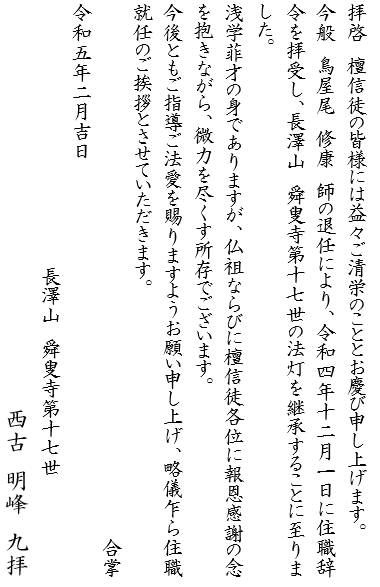 拝啓　檀信徒の皆様には益々ご清栄のこととお慶び申し上げます。
今般　鳥屋尾　修康　師の退任により、令和四年十二月一日に住職辞
令を拝受し、長澤山　舜叟寺第十七世の法灯を継承することに至りま
した。
浅学菲才の身でありますが、仏祖ならびに檀信徒各位に報恩感謝の念
を抱きながら、微力を尽くす所存でございます。
今後ともご指導ご法愛を賜りますようお願い申し上げ、略儀乍ら住職
就任のご挨拶とさせていただきます。
合掌
令和五年二月吉日
長澤山　舜叟寺第十七世
西古　明峰　九拝